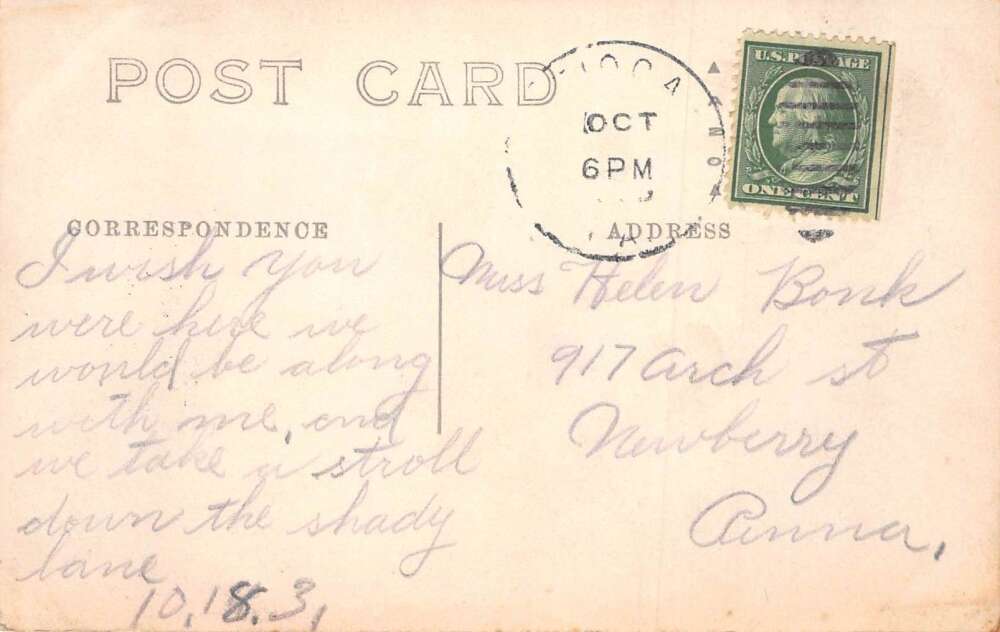 POST CARD
OCT
6 PM
A
U.S. POSTAGE
ONE CENT
CORRESPONDENCE
I wish you
were here we
would be along
with me, and
we take a stroll
down the shady
lane
10,18.3,
ADDRESS
Miss Helen Bonk
917 Arch st
Newberry
Penna,